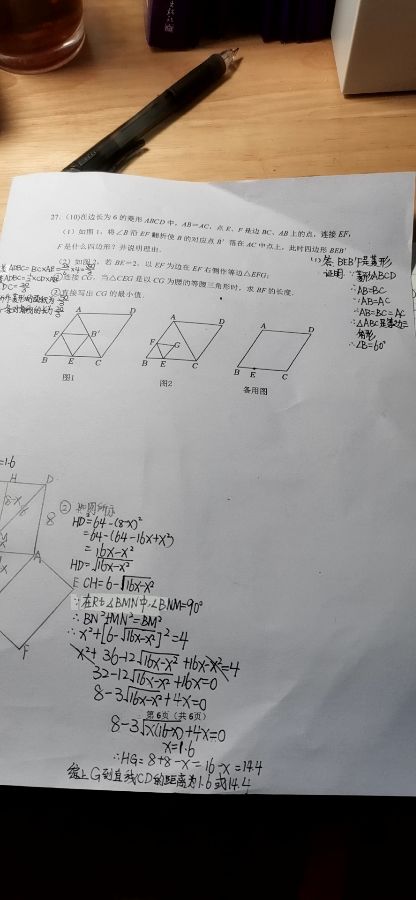 27. (10)在边长为6的菱形ABCD中,AB=AC,点E、F是边BC、AB上的点,连接EF,
(1)如图1,将∠B沿EF翻折使B的对应点B′落在AC中点上,此时四边形BEB′
F是什么四边形?并说明理由.
(2)如图2,若BE=2,以EF为边在EF右侧作等边△EFG;
①连接CG,当△CEG是以CG为腰的等腰三角形时,求BF的长度.
②直接写出CG的最小值.
答,BEB′F是菱形
证明:∵菱形ABCD
∴AB=BC
∵AB=AC
∴AB=BC=AC
∴△ABC是等边三
角形
∴∠B=60°
A D
F B′
B E C
图1
A D
F G
B E C
图2
A D
B E C
备用图
=1.6
H D
8-x
8
A
F
② 如图所示
HD²=64-(8-x)²
=64-(64-16x+x²)
=16x-x²
HD=√16x-x²
CH=6-√16x-x²
∵在Rt△BMN中∠BNM=90°
∴BN²+MN²=BM²
∴x²+[6-√16x-x²]²=4
x²+36-12√16x-x²+16x-x²=4
32-12√16x-x²+16x=0
8-3√16x-x²+4x=0
第6页(共6页)
8-3√x(16-x)+4x=0
x=1.6
∴HG=8+8-x=16-x=14.4
综上G到直线CD的距离为1.6或14.4